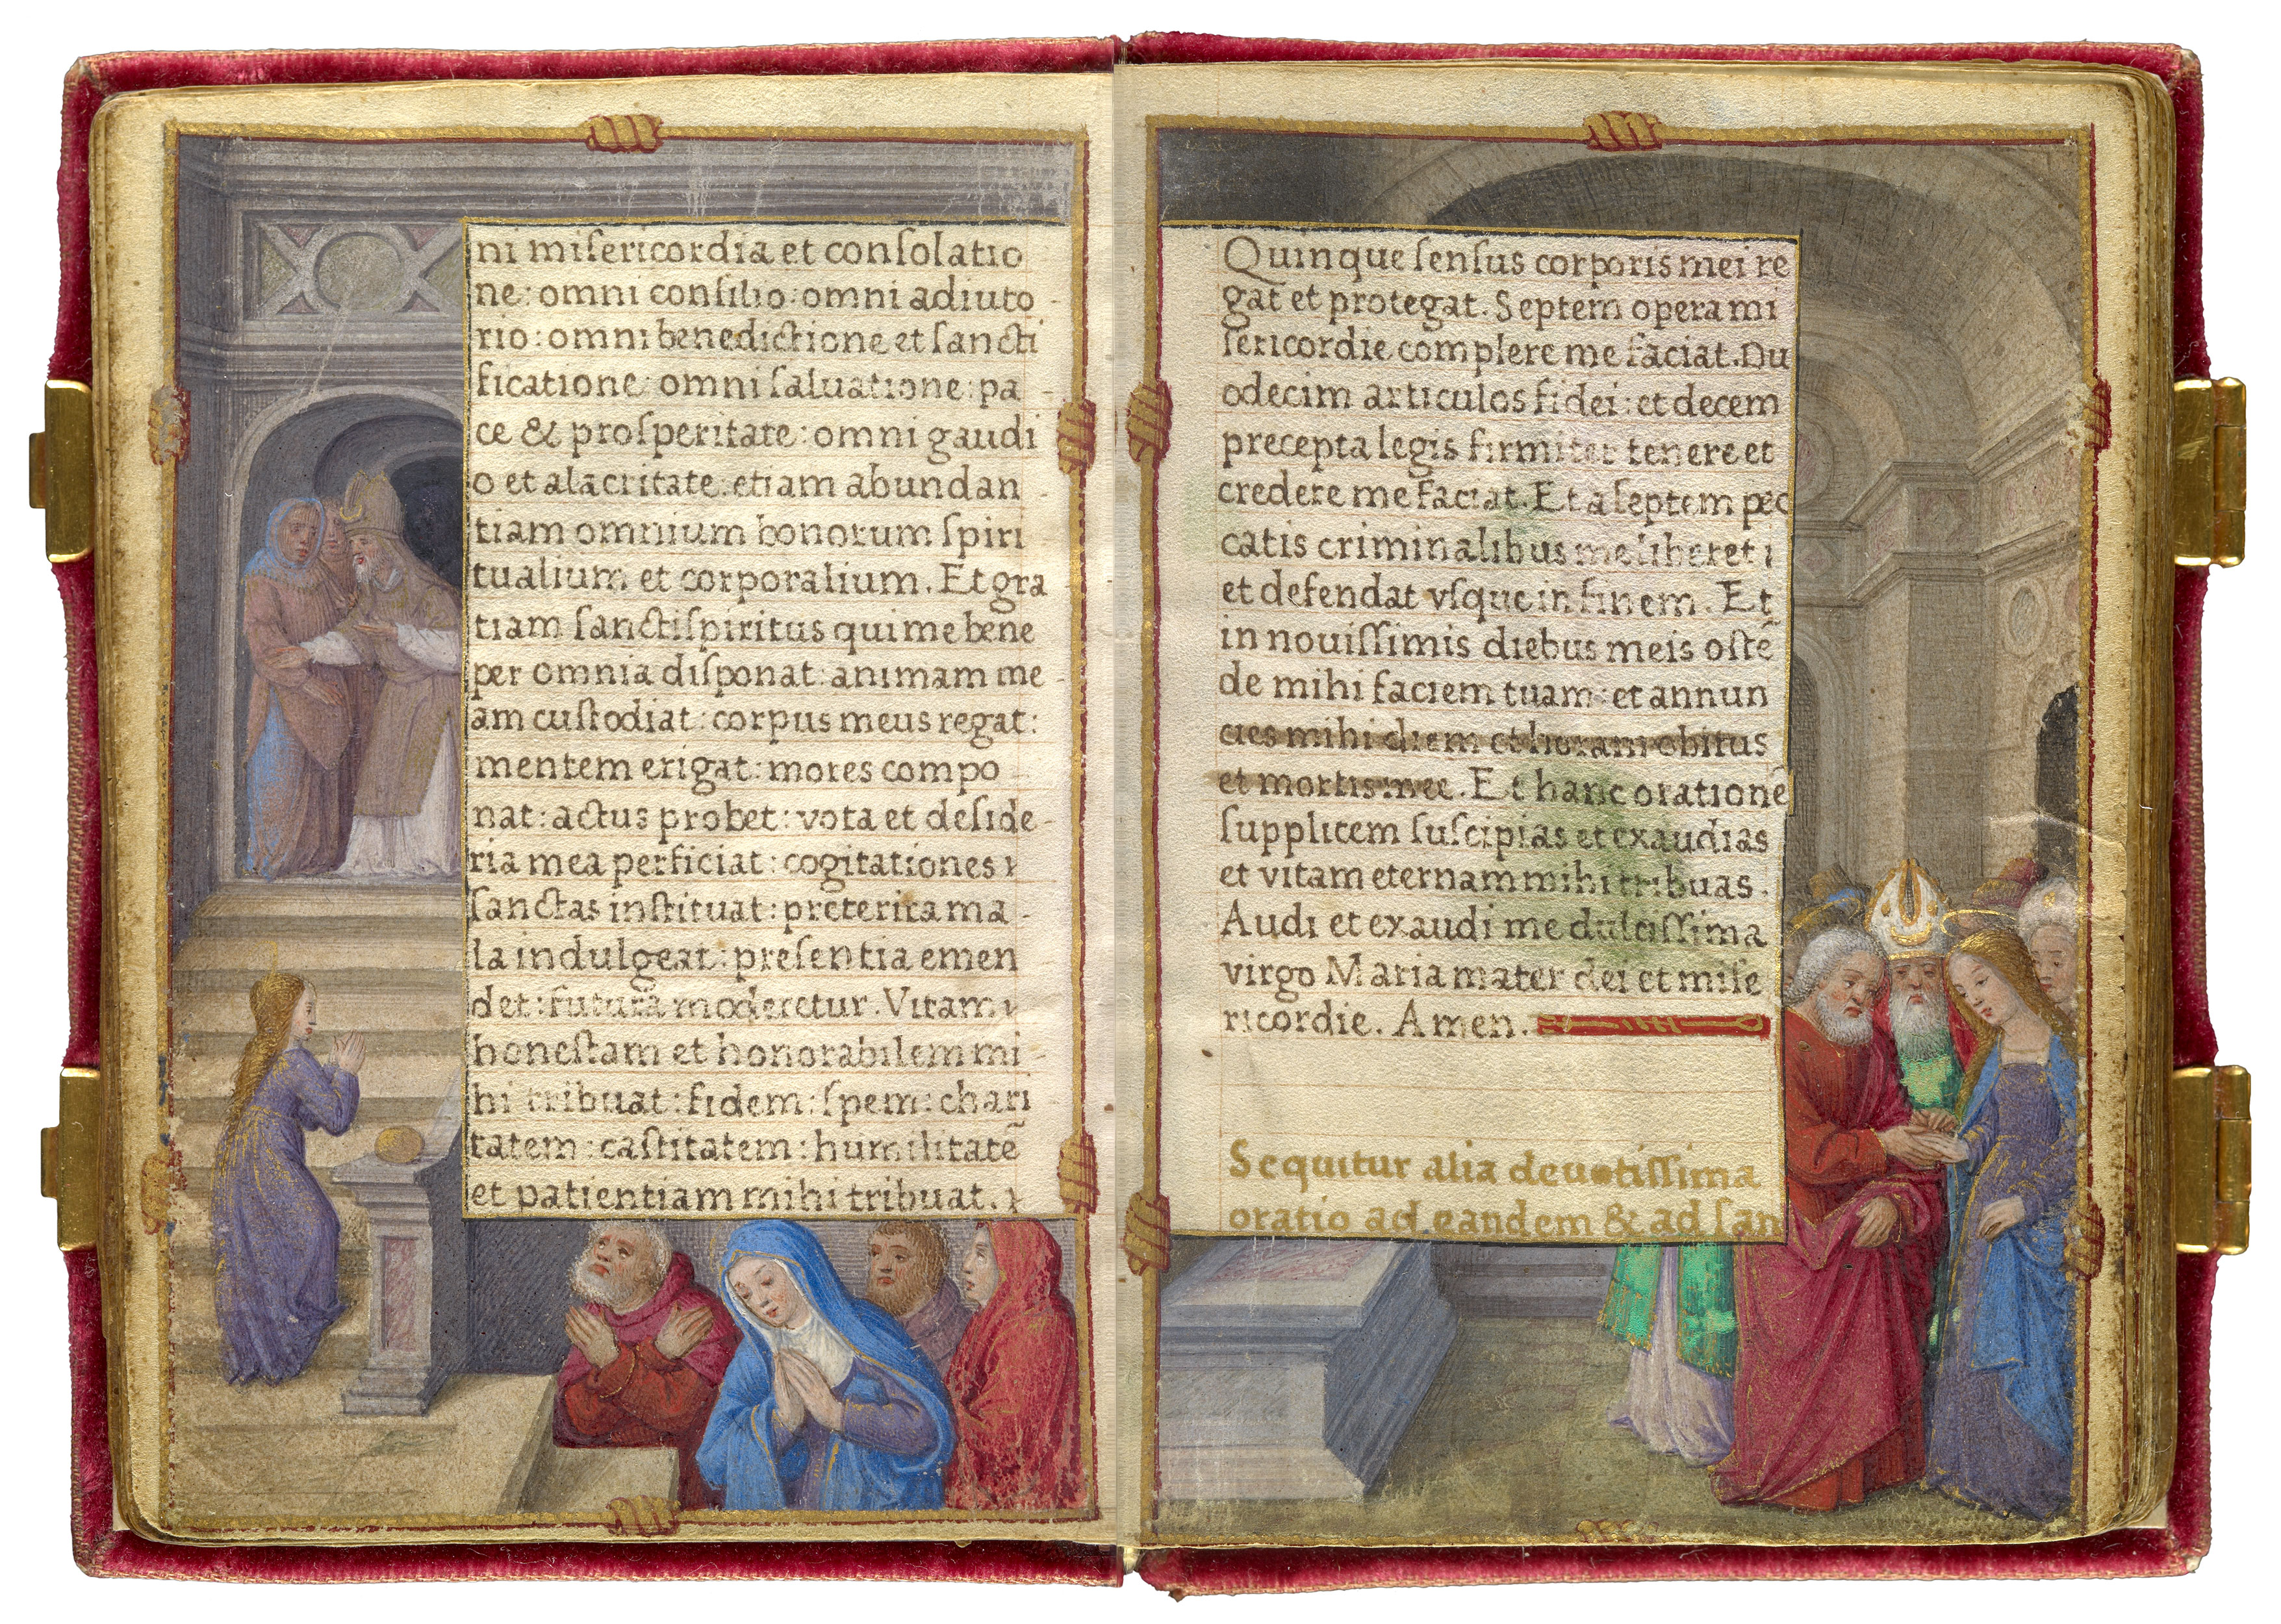 ni miſericordia et conſolatio
ne: omni conſilio: omni adiuto-
rio: omni benedictione et ſancti
ficatione: omni ſaluatione: pa-
ce & proſperitate: omni gaudi
o et alacritate. etiam abundan-
tiam omnium bonorum ſpiri
tualium et corporalium. Et gra
tiam ſanctiſpiritus qui me bene
per omnia diſponat: animam me-
am cuſtodiat: corpus meus regat:
mentem erigat: mores compo-
nat: actus probet: vota et deſide-
ria mea perficiat: cogitationes
ſanctas inſtituat: preterita ma-
la indulgeat: preſentia emen
det: futura moderetur. Vitam
honeſtam et honorabilem mi-
hi tribuat: fidem: ſpem: chari
tatem: caſtitatem: humilitatē
et patientiam mihi tribuat.
Quinque ſenſus corporis mei re
gat et protegat. Septem opera mi
ſericordie complere me faciat. Du
odecim articulos fidei: et decem
precepta legis firmiter tenere et
credere me faciat. Et a ſeptem pec
catis criminalibus me liberet
et defendat vſque in finem. Et
in nouiſſimis diebus meis oſtē
de mihi faciem tuam: et annun
cies mihi diem et horam obitus
et mortis mee. Et hanc orationē
ſupplicem ſuſcipias et exaudias
et vitam eternam mihi tribuas.
Audi et exaudi me dulciſſima
virgo Maria mater dei et miſe
ricordie. Amen.
Sequitur alia deuotiſſima
oratio ad eandem & ad ſan